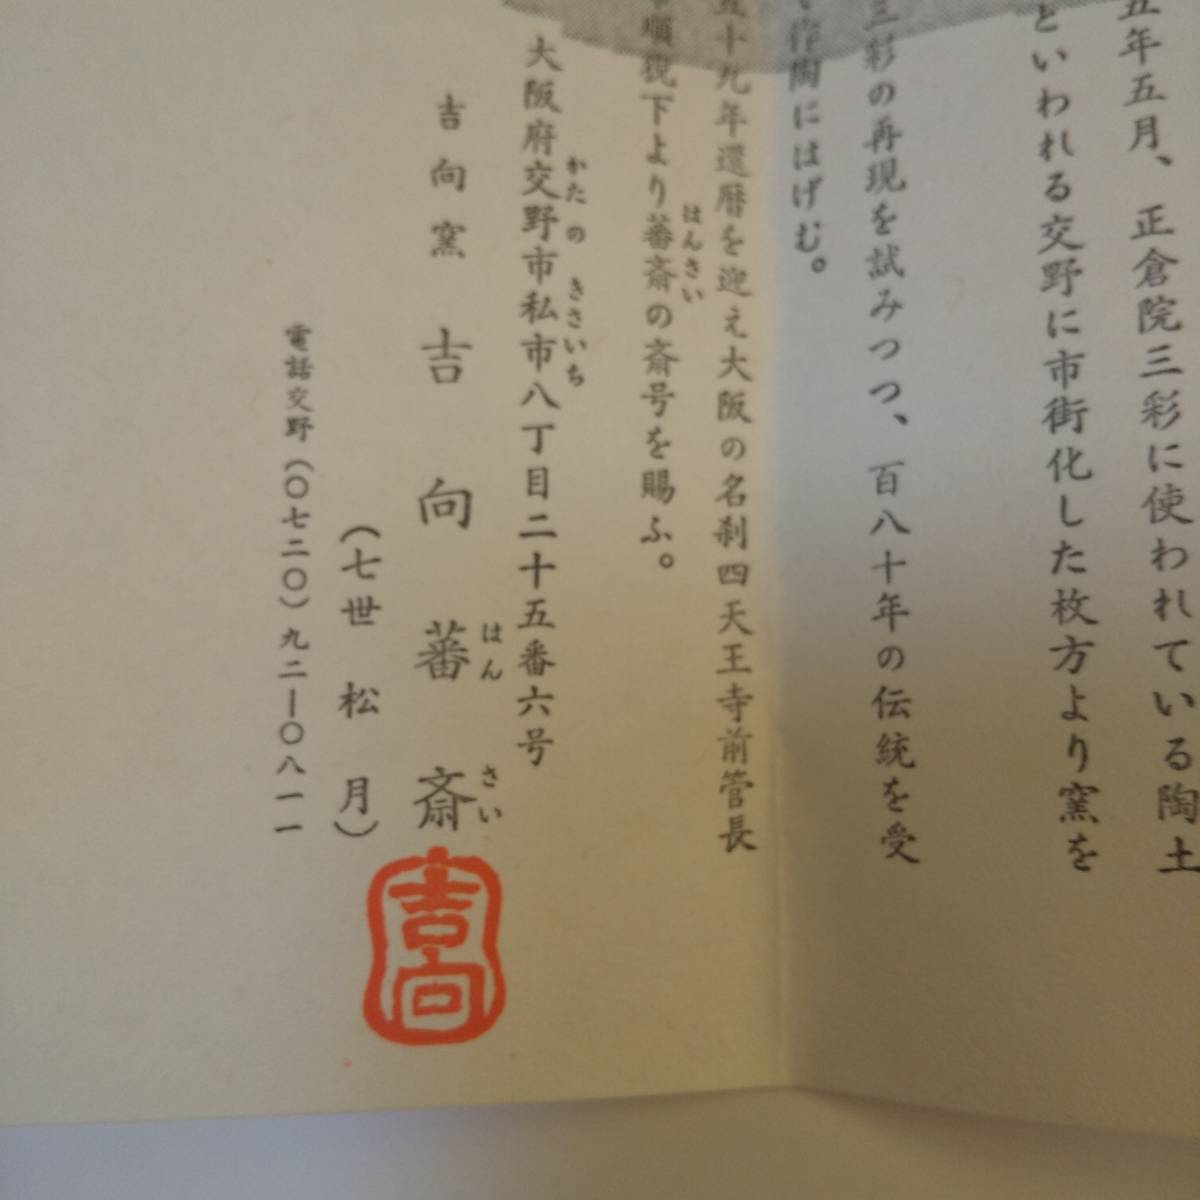 五年五月、正倉院三彩に使われている陶土
といわれる交野に市街化した枚方より窯を
三彩の再現を試みつつ、百八十年の伝統を受
作陶にはげむ。
五十九年還暦を迎え大阪の名刹四天王寺前管長
順猊下より蕃斎の斎号を賜ふ。
はんさい
大阪府交野市私市八丁目二十五番六号
かたの きさいち
吉向窯 吉向蕃斎
はん さい
(七世 松月)
電話交野(〇七二〇)九二ー〇八一一
吉向